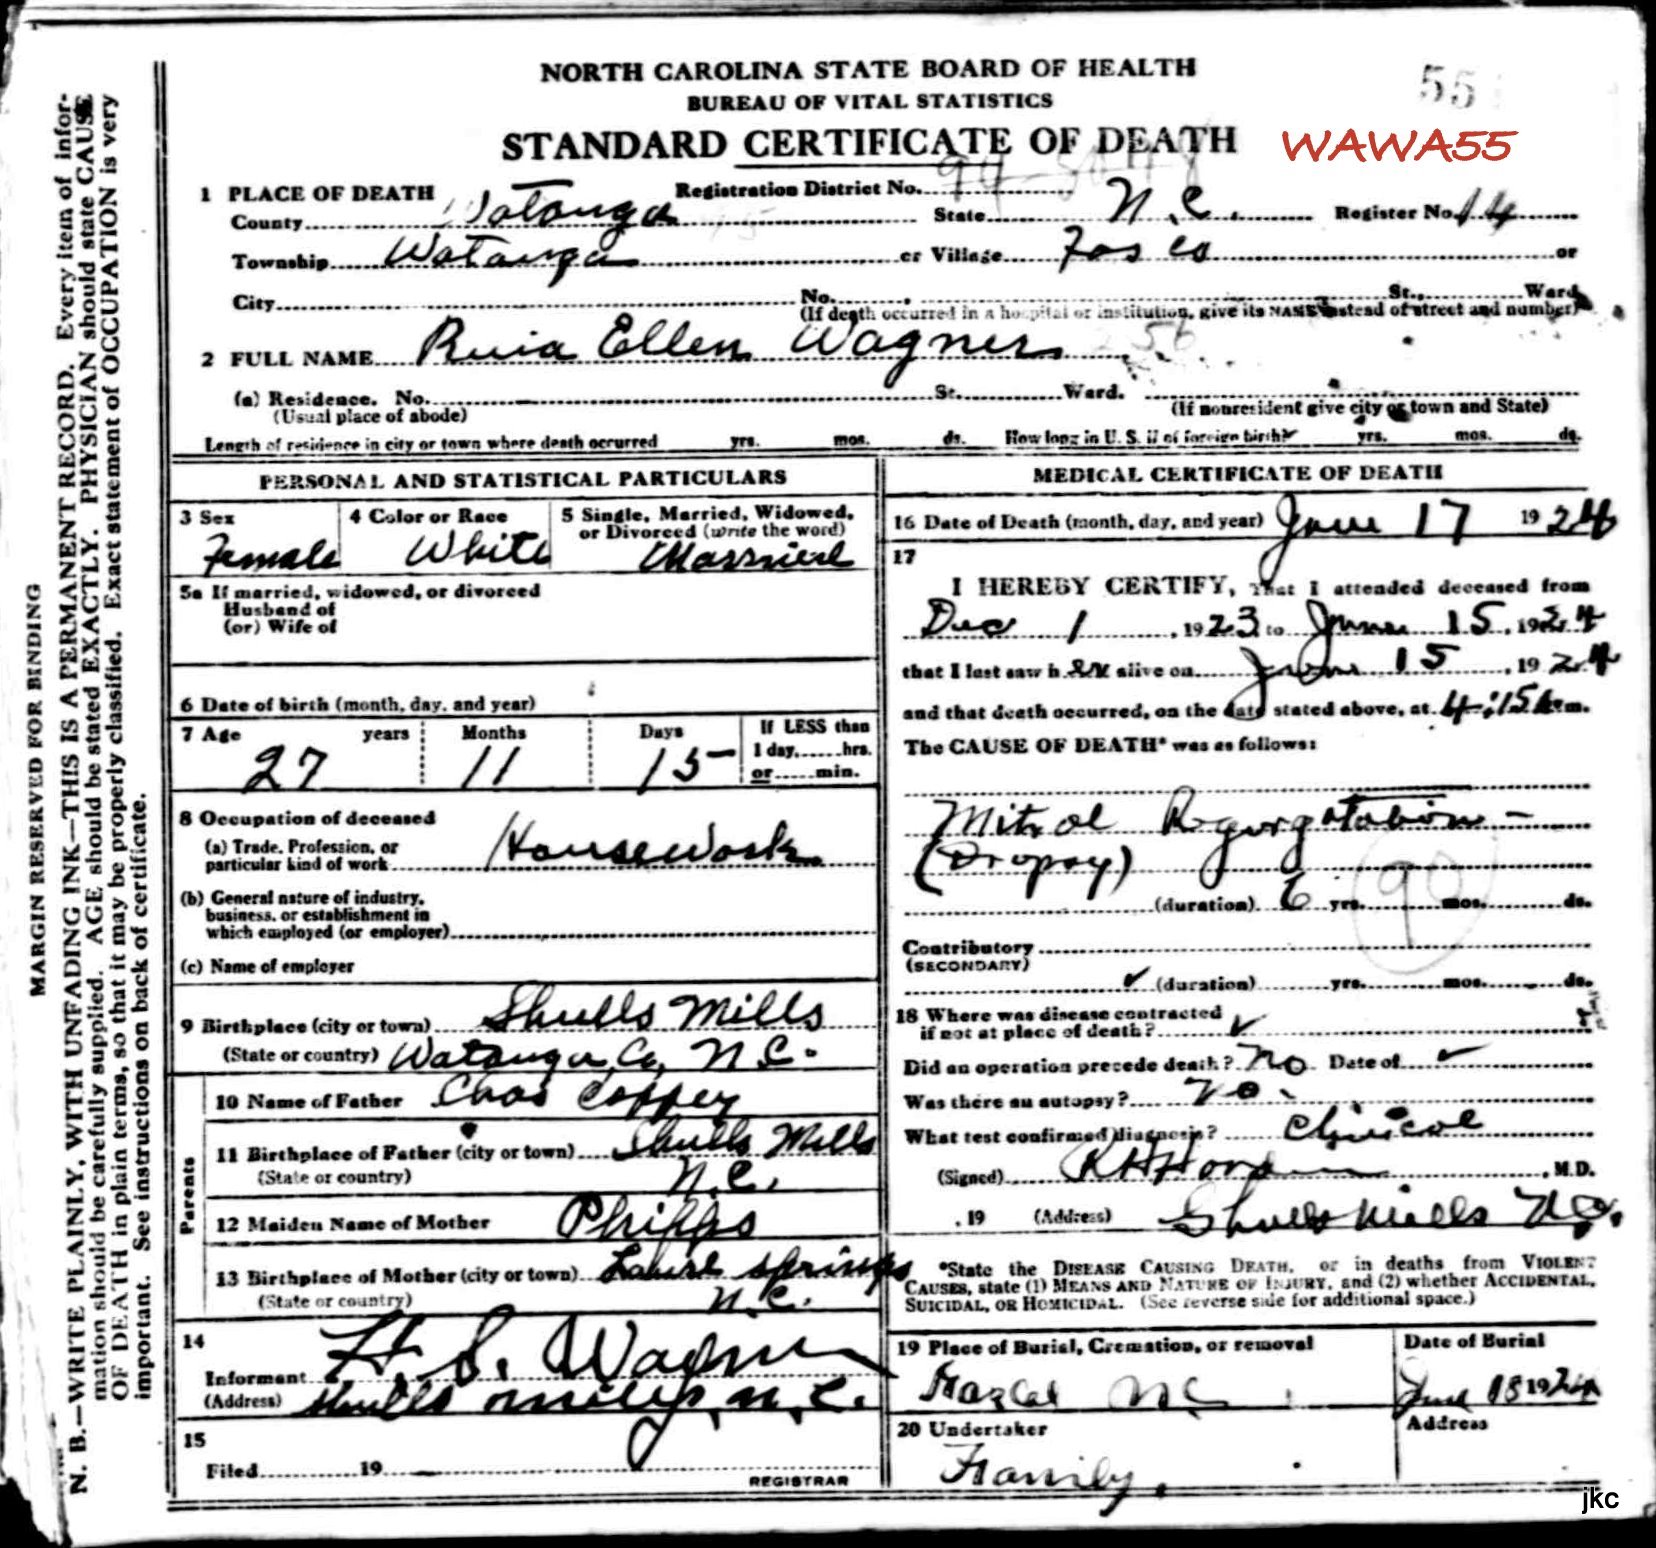 NORTH CAROLINA STATE BOARD OF HEALTH
BUREAU OF VITAL STATISTICS
STANDARD CERTIFICATE OF DEATH
55
WAWA55
1 PLACE OF DEATH Registration District No. 94
County Watauga State N.C. Register No. 14
Township Watauga or Village Foscо or
City No. St., Ward
(If death occurred in a hospital or institution, give its NAME instead of street and number)
2 FULL NAME Ellen Wagner
(a) Residence. No. St. Ward.
(Usual place of abode) (If nonresident give city or town and State)
Length of residence in city or town where death occurred yrs. mos. ds. How long in U. S. if of foreign birth? yrs. mos. ds.
PERSONAL AND STATISTICAL PARTICULARS
3 Sex 4 Color or Race 5 Single, Married, Widowed, or Divorced (write the word)
Female White Married
5a If married, widowed, or divorced
Husband of
(or) Wife of
6 Date of birth (month, day, and year)
7 Age years Months Days If LESS than
27 11 15 1 day, hrs.
or min.
8 Occupation of deceased
(a) Trade, Profession, or
particular kind of work Housework
(b) General nature of industry,
business, or establishment in
which employed (or employer)
(c) Name of employer
9 Birthplace (city or town) Shulls Mills
(State or country) Watauga Co, N.C.
Parents
10 Name of Father Coffey
11 Birthplace of Father (city or town) Shulls Mills
(State or country) N.C.
12 Maiden Name of Mother Phillps
13 Birthplace of Mother (city or town) Laurel springs
(State or country) N.C.
14
Informant H. S. Wagner
(Address) Shulls Mills, N.C.
15
Filed 19
REGISTRAR
MEDICAL CERTIFICATE OF DEATH
16 Date of Death (month, day, and year) June 17 1924
17
I HEREBY CERTIFY, That I attended deceased from
Dec 1, 1923 to June 15, 1924
that I last saw her alive on June 15, 1924
and that death occurred, on the date stated above, at 4:15 m.
The CAUSE OF DEATH* was as follows:
Mitral Rgurgatation -
(Dropsy)
(duration) 6 yrs. mos. ds.
90
Contributory
(SECONDARY)
✓ (duration) yrs. mos. ds.
18 Where was disease contracted
if not at place of death? ✓
Did an operation precede death? No Date of ✓
Was there an autopsy? No.
What test confirmed diagnosis? Clinical
(Signed) M.D.
, 19 (Address) Shulls Mills N.C.
*State the DISEASE CAUSING DEATH, or in deaths from VIOLENT
CAUSES, state (1) MEANS AND NATURE OF INJURY, and (2) whether ACCIDENTAL,
SUICIDAL, OR HOMICIDAL. (See reverse side for additional space.)
19 Place of Burial, Cremation, or removal Date of Burial
N.C. June 18 1924
20 Undertaker Address
Family.
MARGIN RESERVED FOR BINDING
N. B.—WRITE PLAINLY, WITH UNFADING INK—THIS IS A PERMANENT RECORD. Every item of infor-
mation should be carefully supplied. AGE should be stated EXACTLY. PHYSICIAN should state CAUSE
OF DEATH in plain terms, so that it may be properly classified. Exact statement of OCCUPATION is very
important. See instructions on back of certificate.
jkc